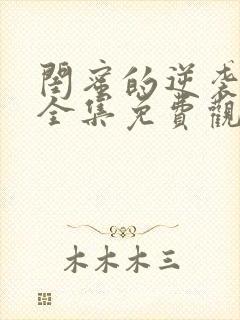 閨蜜的逆袭
全集免費觀
木木木三